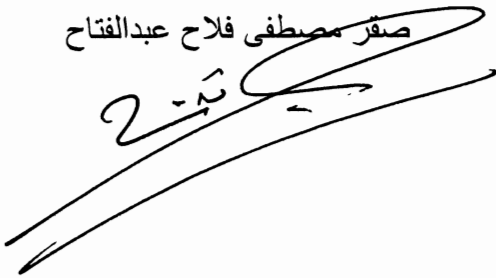 صقر مصطفى فلاح عبدالفتاح